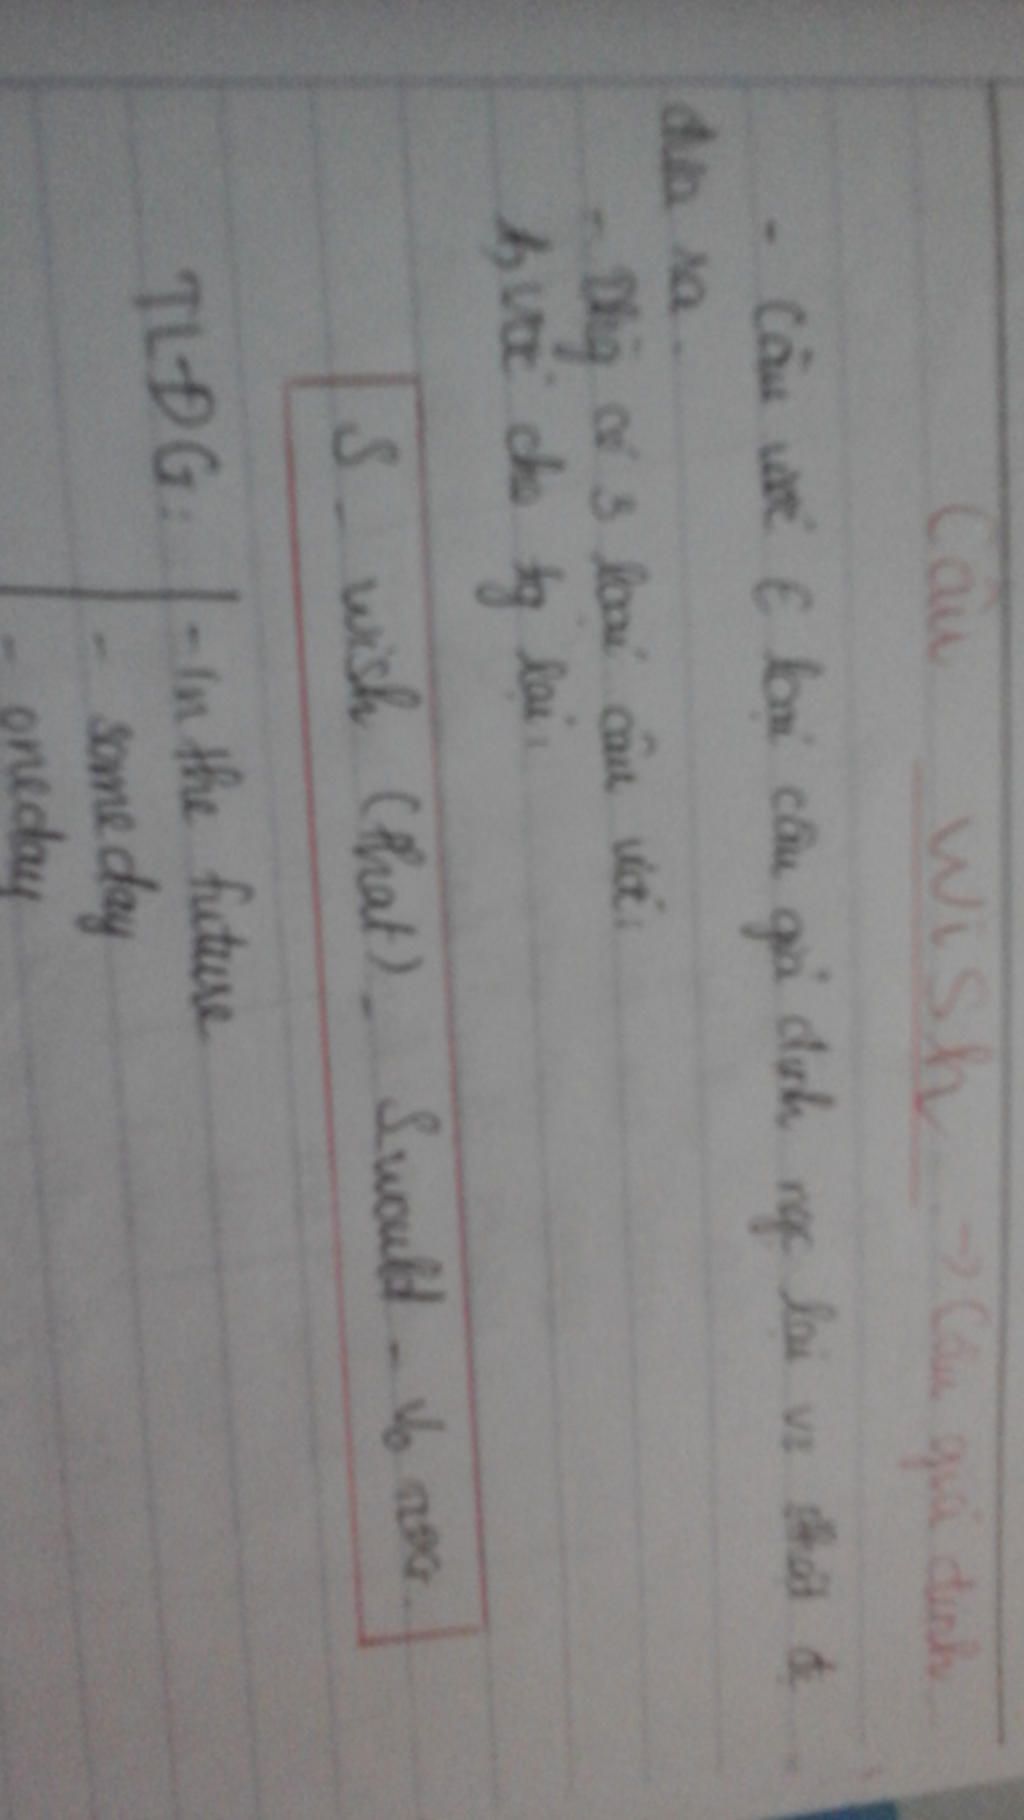 Câu wish → Câu giả định
- Câu ước € loại câu giả định ngc lại vs thật đ
diễn xa.
- Thg có 3 loại câu ước:
1, ước cho tg lai:
S - wish (that) - S would - Vo
TLĐG: - In the future
- someday
- oneday